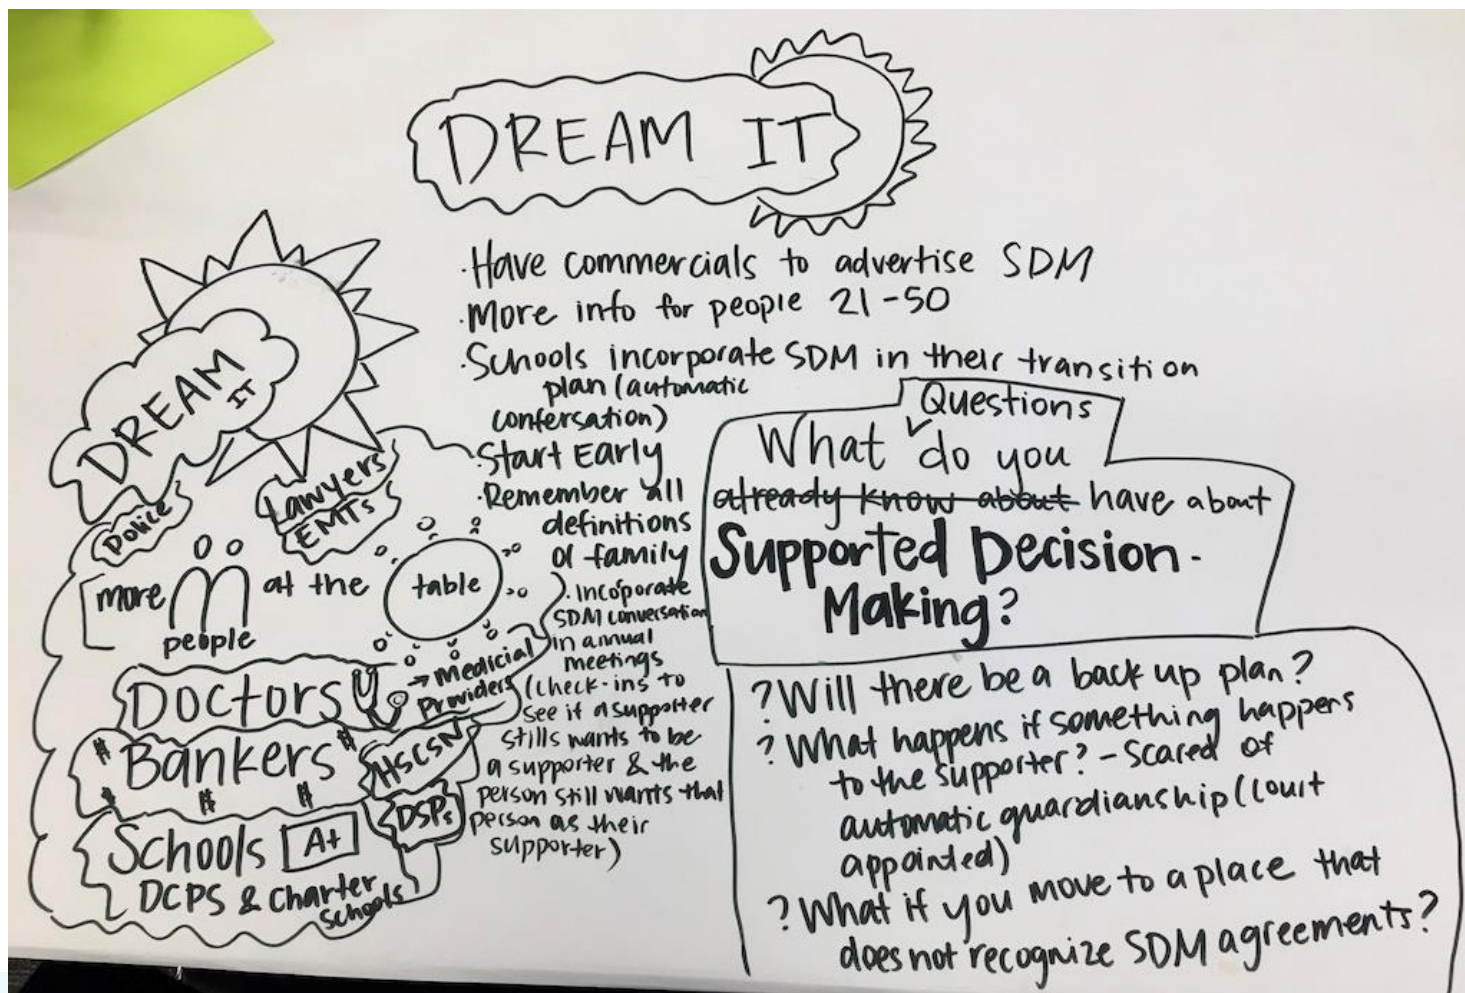 DREAM IT
· Have commercials to advertise SDM
· More info for people 21-50
· Schools incorporate SDM in their transition
plan (automatic
confersation)
· Start Early
· Remember all
definitions
of family
· Incorporate
SDM conversation
in annual
meetings
(check-ins to
see if a supporter
stills wants to be
a supporter & the
person still wants that
person as their
supporter)
DREAM
IT
Police
Lawyers
EMTs
more people at the table
Doctors
→ Medicial
Providers
$ Bankers $
$ $
HSCSN
DSPs
Schools A+
DCPS & Charter
Schools
Questions
What do you
already know about have about
Supported Decision-
Making?
? Will there be a back up plan?
? What happens if something happens
to the supporter? - Scared of
automatic guardianship (court
appointed)
? What if you move to a place that
does not recognize SDM agreements?